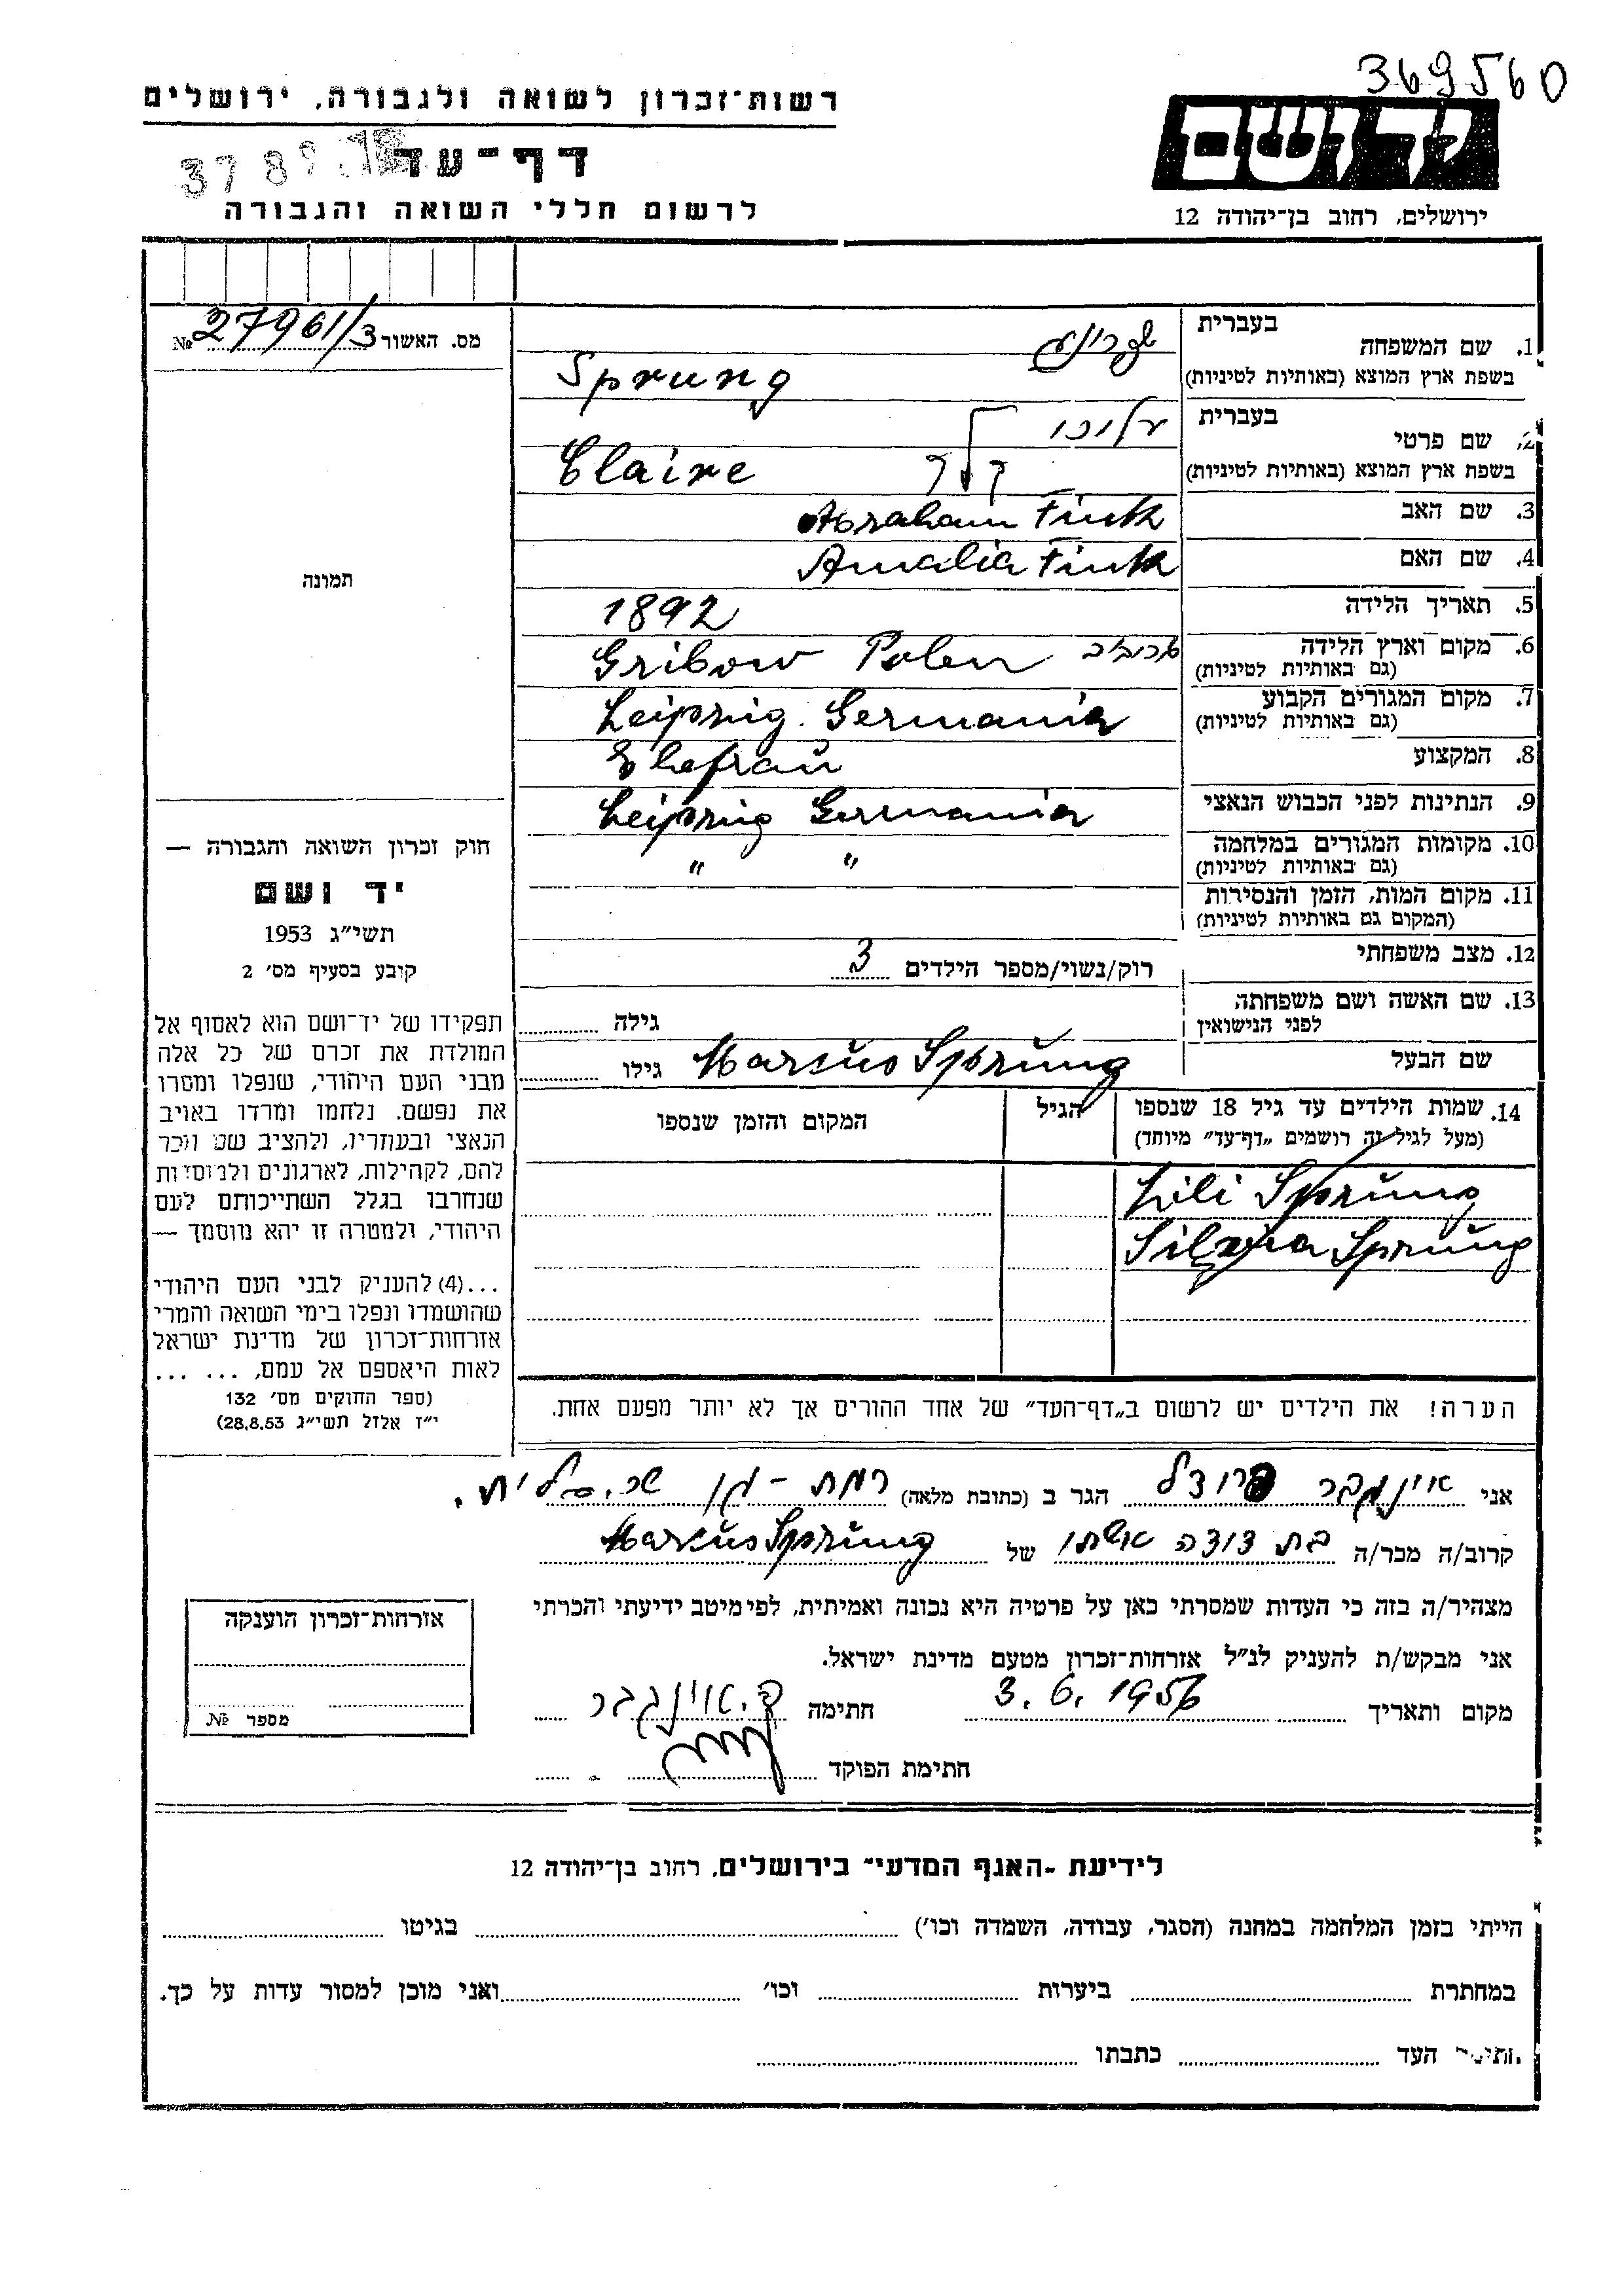 369560
רשות־זכרון לשואה ולגבורה, ירושלים
ידושם
דף־עד
לרשום חללי השואה והגבורה
ירושלים, רחוב בן־יהודה 12
מס. האשור 27961/3 №
1. שם המשפחה
בעברית שפרונג
בשפת ארץ המוצא (באותיות לטיניות) Sprung
2. שם פרטי
בעברית
בשפת ארץ המוצא (באותיות לטיניות) Claire
3. שם האב Abraham Fink
4. שם האם Amalia Fink
5. תאריך הלידה 1892
6. מקום וארץ הלידה Gribow Polen
(גם באותיות לטיניות)
7. מקום המגורים הקבוע Leipzig. Germania
(גם באותיות לטיניות)
8. המקצוע Ehefrau
9. הנתינות לפני הכבוש הנאצי Leipzig Germania
10. מקומות המגורים במלחמה " "
(גם באותיות לטיניות)
11. מקום המות, הזמן והנסירות
(המקום גם באותיות לטיניות)
12. מצב משפחתי
רוק/נשוי/מספר הילדים 3
13. שם האשה ושם משפחתה
לפני הנישואין
גילה
שם הבעל Markus Sprung גילו
14. שמות הילדים עד גיל 18 שנספו
(מעל לגיל זה רושמים „דף־עד” מיוחד)
הגיל
המקום והזמן שנספו
Lili Sprung
Silvia Sprung
הערה! את הילדים יש לרשום ב„דף־העד” של אחד ההורים אך לא יותר מפעם אחת.
תמונה
חוק זכרון השואה והגבורה —
יד ושם
תשי״ג 1953
קובע בסעיף מס׳ 2
תפקידו של יד־ושם הוא לאסוף אל
המולדת את זכרם של כל אלה
מבני העם היהודי, שנפלו ומסרו
את נפשם. נלחמו ומרדו באויב
הנאצי ובעוזריו, ולהציב שם וזכר
להם, לקהילות, לארגונים ולמוסדות
שנחרבו בגלל השתייכותם לעם
היהודי, ולמטרה זו יהא מוסמך —
...(4) להעניק לבני העם היהודי
שהושמדו ונפלו בימי השואה והמרי
אזרחות־זכרון של מדינת ישראל
לאות היאספם אל עמם, ... ...
(ספר החוקים מס׳ 132
י״ז אלול תשי״ג 28.8.53)
אני אוינגבר פרידל הגר ב (כתובת מלאה) רמת-גן
קרוב/ה מכר/ה בת דודה אשתו של Markus Sprung
מצהיר/ה בזה כי העדות שמסרתי כאן על פרטיה היא נכונה ואמיתית, לפי מיטב ידיעתי והכרתי
אני מבקש/ת להעניק לנ״ל אזרחות־זכרון מטעם מדינת ישראל.
מקום ותאריך 3.6.1956 חתימה פ. אוינגבר
חתימת הפוקד
אזרחות־זכרון הוענקה
מספר №
לידיעת „האגף המדעי” בירושלים, רחוב בן־יהודה 12
הייתי בזמן המלחמה במחנה (הסגר, עבודה, השמדה וכו׳) בגיטו
במחתרת ביערות וכו׳ ואני מוכן למסור עדות על כך.
חתימת העד כתבתו